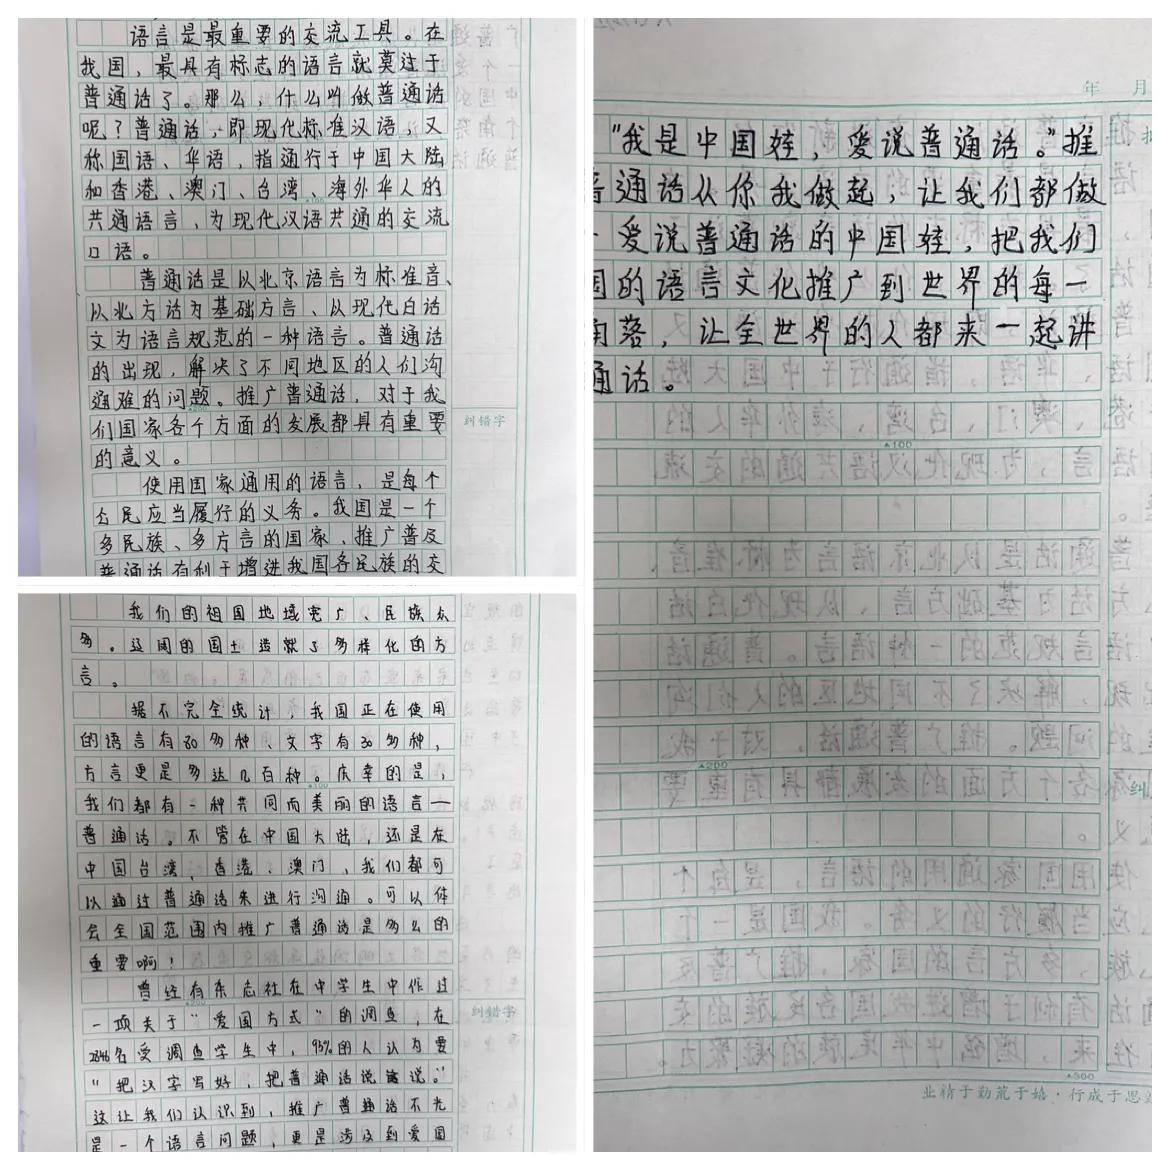 语言是最重要的交流工具。在
我国，最具有标志的语言就莫过于
普通话了。那么，什么叫做普通话
呢？普通话，即现代标准汉语，又
称国语、华语，指通行于中国大陆
和香港、澳门、台湾、海外华人的
共通语言，为现代汉语共通的交流
口语。
普通话是以北京语言为标准音、
以北方话为基础方言、以现代白话
文为语言规范的一种语言。普通话
的出现，解决了不同地区的人们沟
通难的问题。推广普通话，对于我
们国家各个方面的发展都具有重要
的意义。
纠错字
使用国家通用的语言，是每个
公民应当履行的义务。我国是一个
多民族、多方言的国家，推广普及
普通话有利于增进我国各民族的交
我们的祖国地域宽广、民族众
多。辽阔的国土造就了多样化的方
言。
据不完全统计，我国正在使用
的语言有80多种、文字有30多种，
方言更是多达几百种。庆幸的是，
我们都有一种共同而美丽的语言—
普通话。不管在中国大陆，还是在
中国台湾、香港、澳门，我们都可
以通过普通话来进行沟通。可以体
会全国范围内推广普通话是多么的
重要啊！
曾经有杂志社在中学生中作过
一项关于“爱国方式”的调查，在
名受调查学生中，95%的人认为要
“把汉字写好，把普通话说说。”
这让我们认识到，推广普通话不光
是一个语言问题，更是涉及到爱国
纠错字
年 月
“我是中国娃，爱说普通话。”推
普通话从你我做起，让我们都做
爱说普通话的中国娃，把我们
国的语言文化推广到世界的每一
角落，让全世界的人都来一起讲
通话。
▲100
▲200
▲300
业精于勤荒于嬉·行成于思